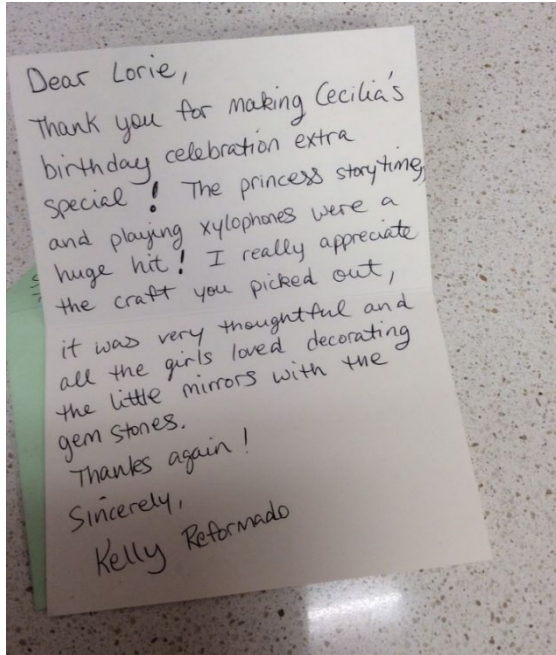 Dear Lorie,
Thank you for making Cecilia's
birthday celebration extra
special! The princess storytime,
and playing xylophones were a
huge hit! I really appreciate
the craft you picked out,
it was very thoughtful and
all the girls loved decorating
the little mirrors with the
gem stones.
Thanks again!
Sincerely,
Kelly Reformado